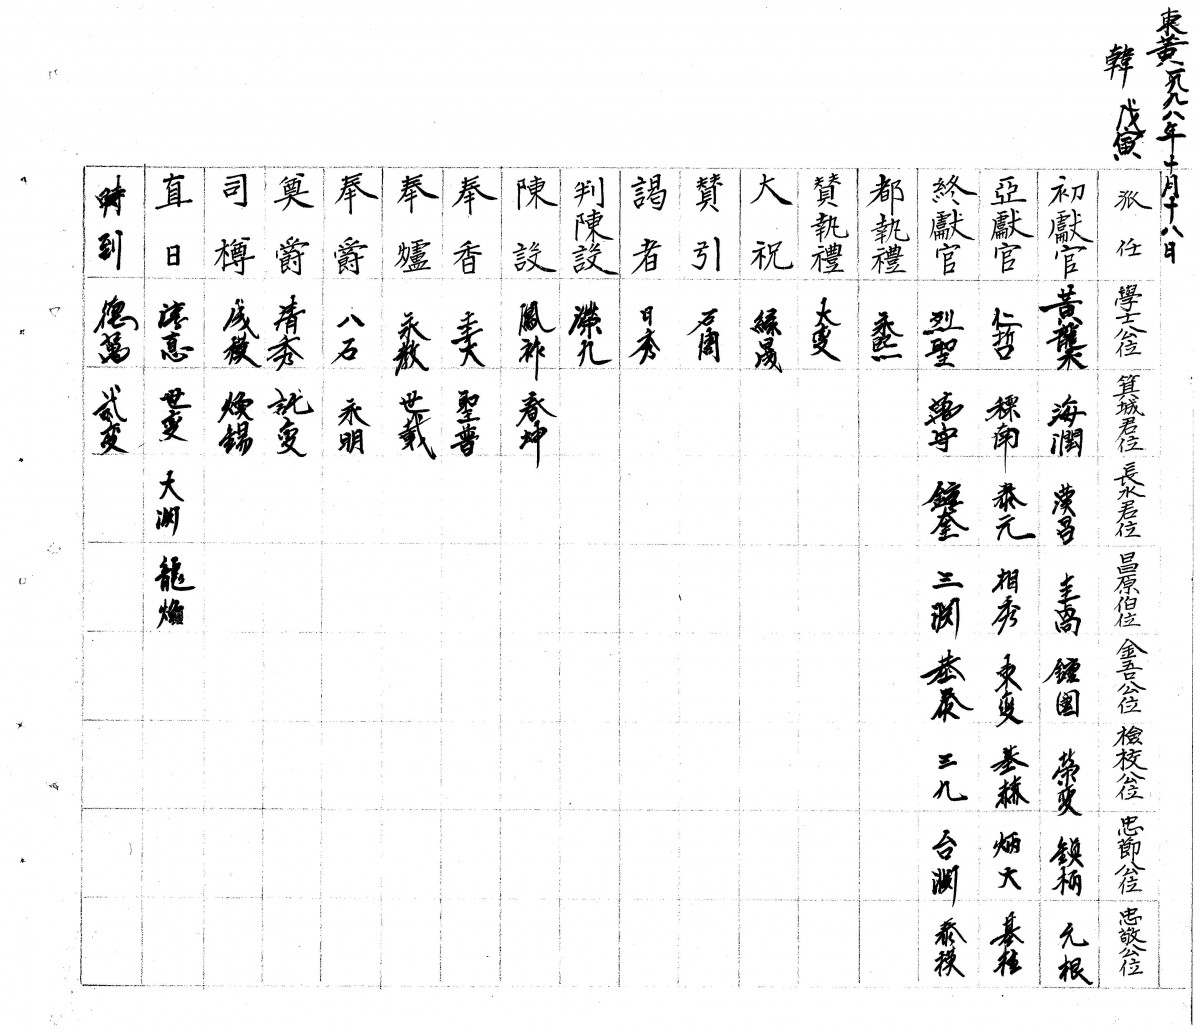 東黃一九九八年十月十八日
韓 戊寅
派任 學士公位 箕城君位 長水君位 昌原伯位 金吾公位 檢校公位 忠節公位 忠敬公位
初獻官 黃龍 海潤 漢昌 圭卨 鍾國 榮變 鎮柄 元根
亞獻官 仁哲 南 泰元 相秀 東變 基赫 炳大 基柱
終獻官 烈聖 鍾奎 三淵 基泰 三九 台淵 泰稷
都執禮
贊執禮 大變
大祝
贊引 石周
謁者 日秀
判陳設 瀠九
陳設 鳳祚 春坤
奉香 圭大 聖普
奉爐 永敎 世戴
奉爵 八石 永明
奠爵 清秀 託變
司樽 成稷 煥錫
直日 淳憙 世變 天淵 龍煥
時到 德萬 武變